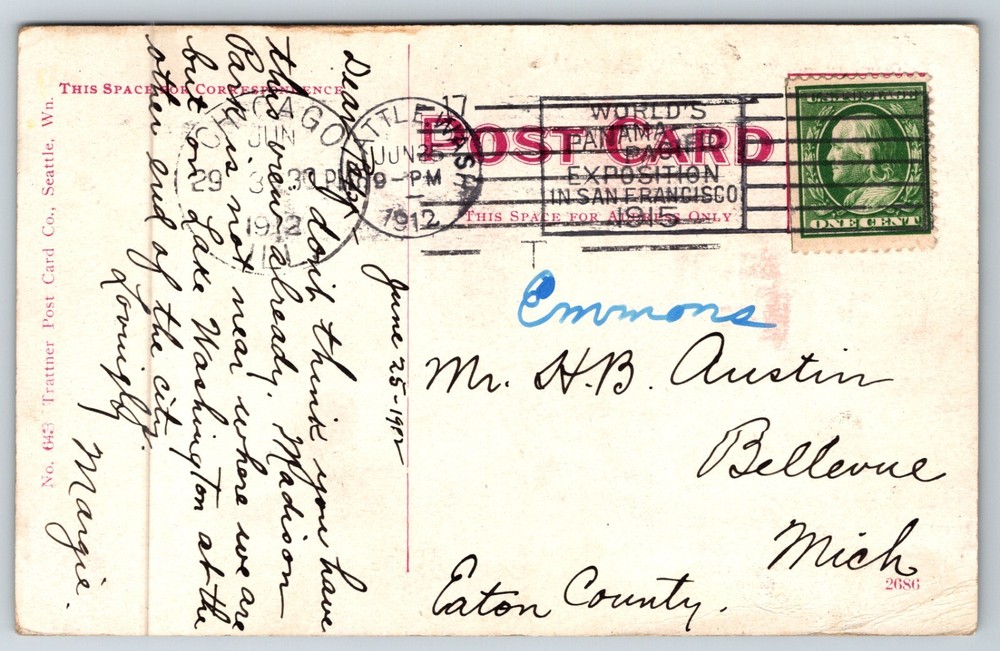 THIS SPACE FOR CORRESPONDENCE
POST CARD
THIS SPACE FOR ADDRESS ONLY
CHICAGO
JUN
29
30 PM
1912
SEATTLE, WASH.
17
JUN 25
9-PM
1912
WORLD'S
PANAMA
PACIFIC
EXPOSITION
IN SAN FRANCISCO
1915
ONE CENT
June 25-1912
I don't think you have
this view already. Madison
Park is not near where we are
but on Lake Washington at the
other end of the city.
Lovingly.
Margie.
Emmons
Mr. H.B. Austin
Bellevue
Mich
Eaton County.
No. 643 Trattner Post Card Co., Seattle, Wn.
2686